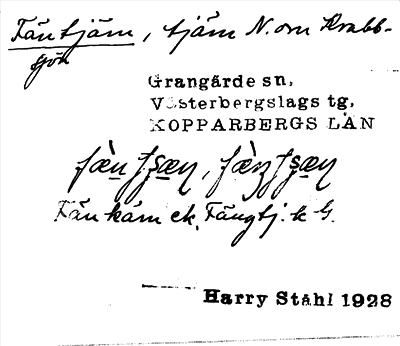 Täntjärn, tjärn N. om Krabb-
sjön
Grangärde sn,
Västerbergslags tg,
KOPPARBERGS LÄN
Tänkärn ek. Tängtj. k G.
Harry Ståhl 1928